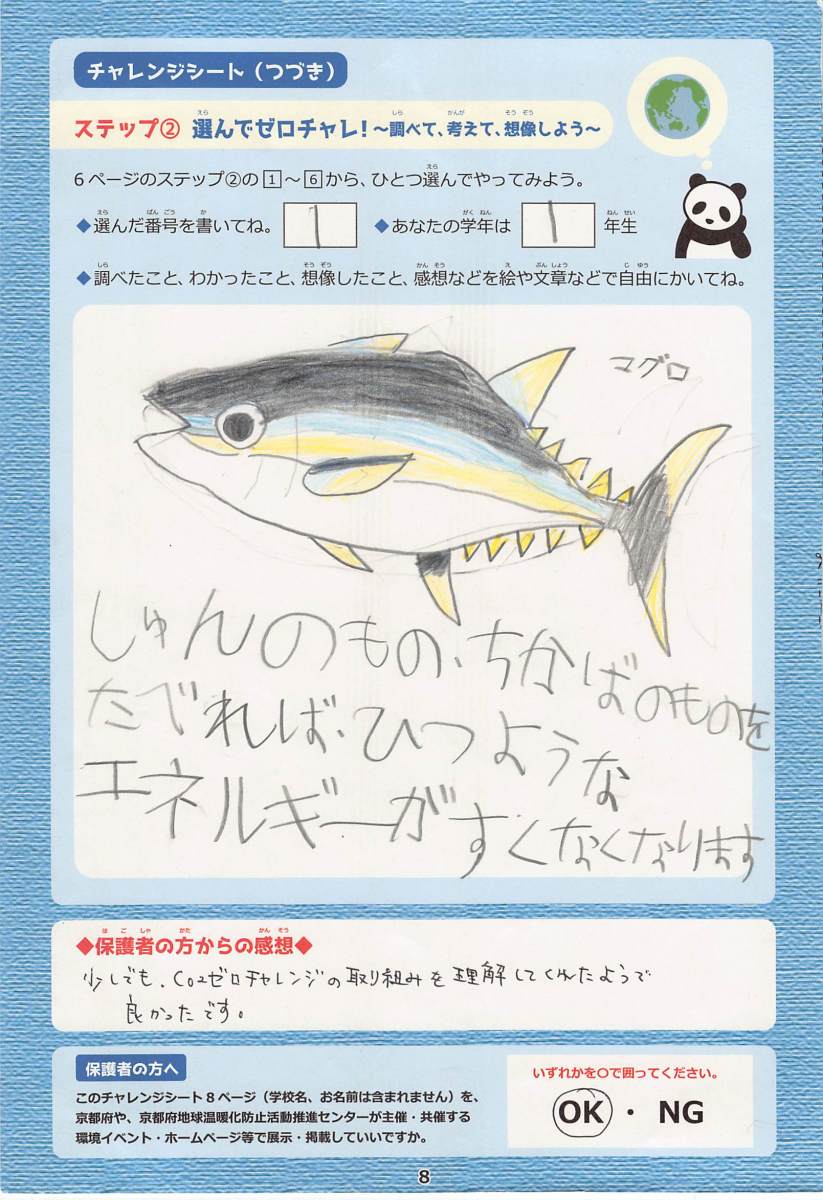 チャレンジシート（つづき）
ステップ② 選んでゼロチャレ！～調べて、考えて、想像しよう～
6ページのステップ②の1～6から、ひとつ選んでやってみよう。
◆選んだ番号を書いてね。 1 ◆あなたの学年は 1 年生
◆調べたこと、わかったこと、想像したこと、感想などを絵や文章などで自由にかいてね。
マグロ
しゅんのもの、ちかばのものを
たべれば、ひつような
エネルギーがすくなくなります
◆保護者の方からの感想◆
少しでも、CO2ゼロチャレンジの取り組みを理解してくれたようで
良かったです。
保護者の方へ
このチャレンジシート8ページ（学校名、お名前は含まれません）を、
京都府や、京都府地球温暖化防止活動推進センターが主催・共催する
環境イベント・ホームページ等で展示・掲載していいですか。
いずれかを○で囲ってください。
OK ・ NG
8